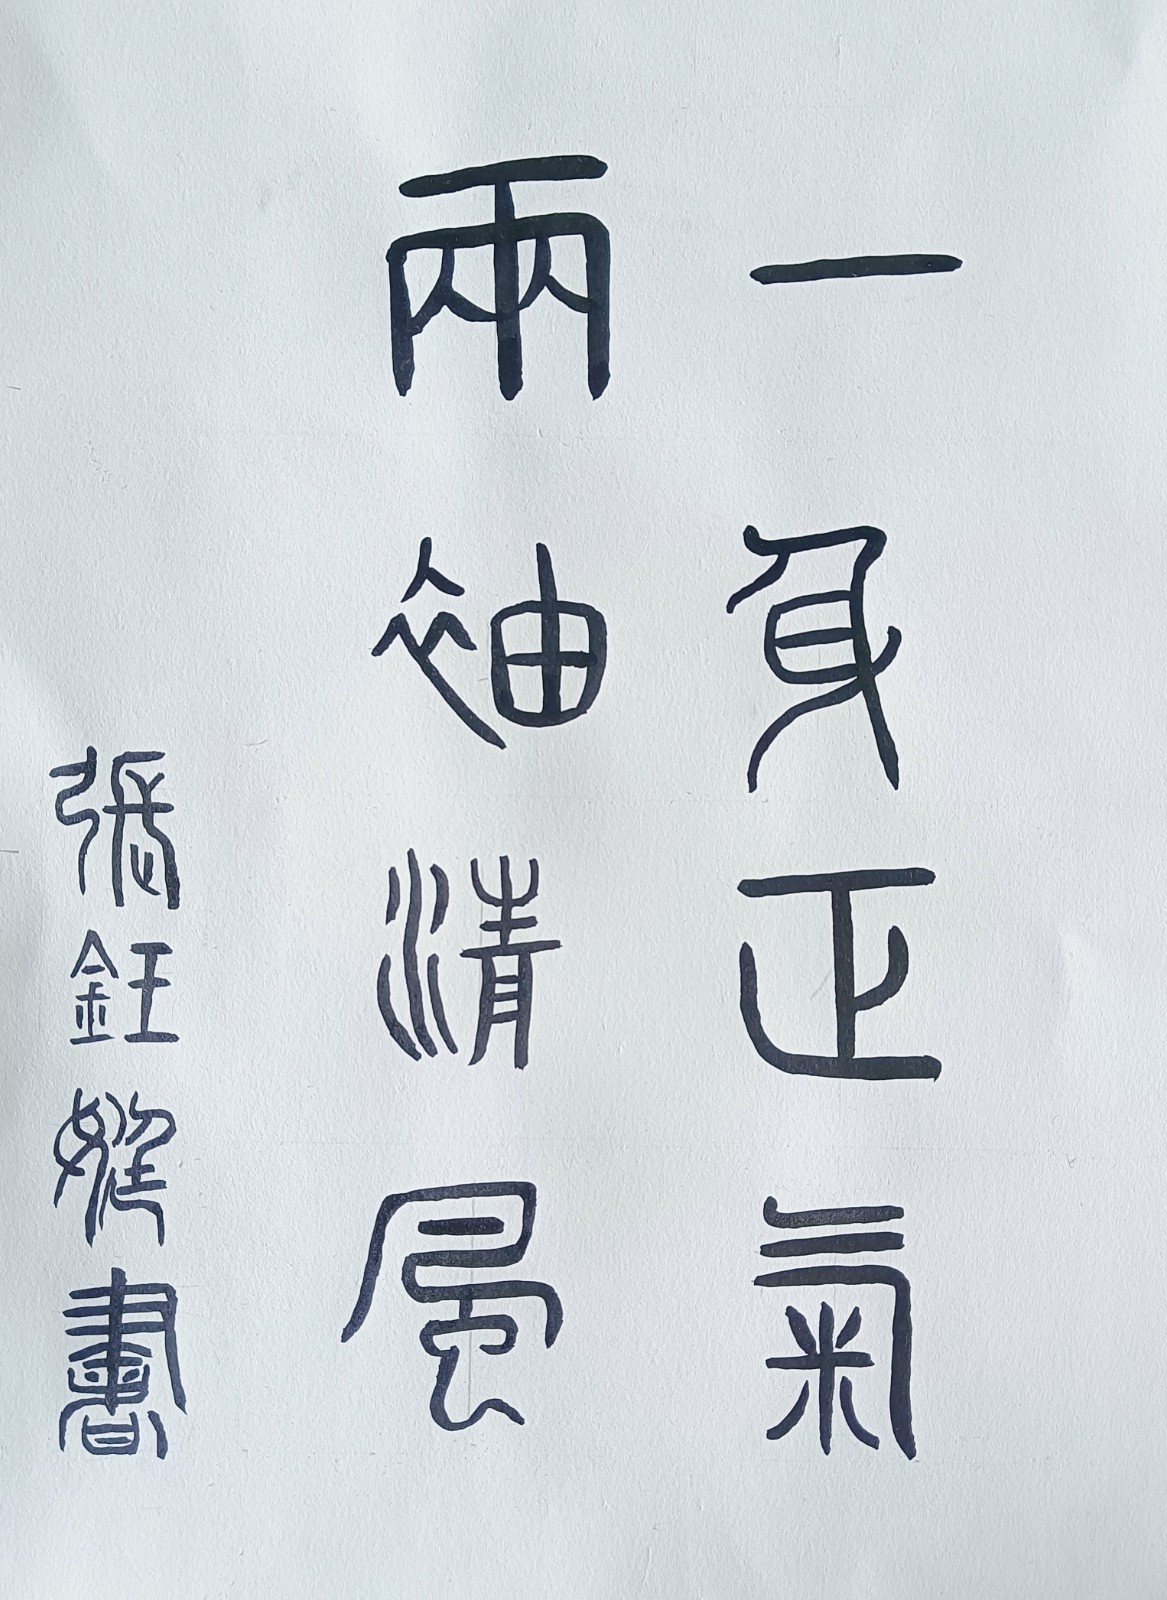 一身正氣
兩袖清風
張鈺婲書